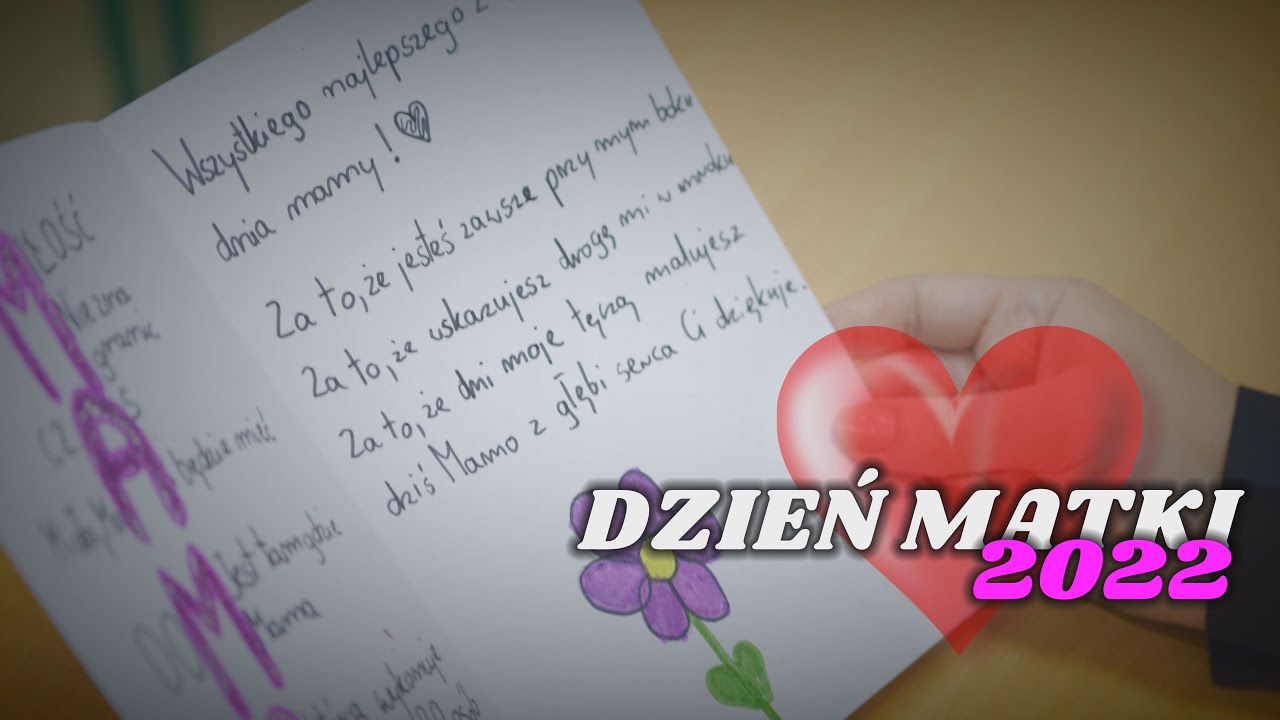 Wszystkiego najlepszego z
dnia mamy!
Za to, że jesteś zawsze przy mym boku
Za to, że wskazujesz drogę mi w mroku
Za to, że dni moje tęczą malujesz
dziś Mamo z głębi serca Ci dziękuje.
MIŁOŚĆ
Nie zna
granic
będzie mieć
jest tam gdzie
Mama
wykonuje
DZIEŃ MATKI
2022